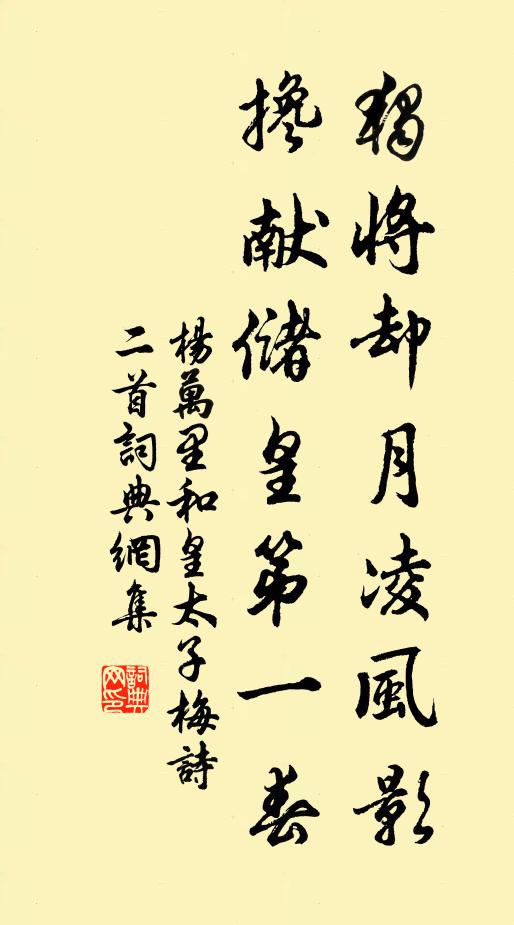 獨將却月凌風影
攙献儲皇第一春
楊萬里和皇太子梅詩
二首詞典網集
詞典
网印